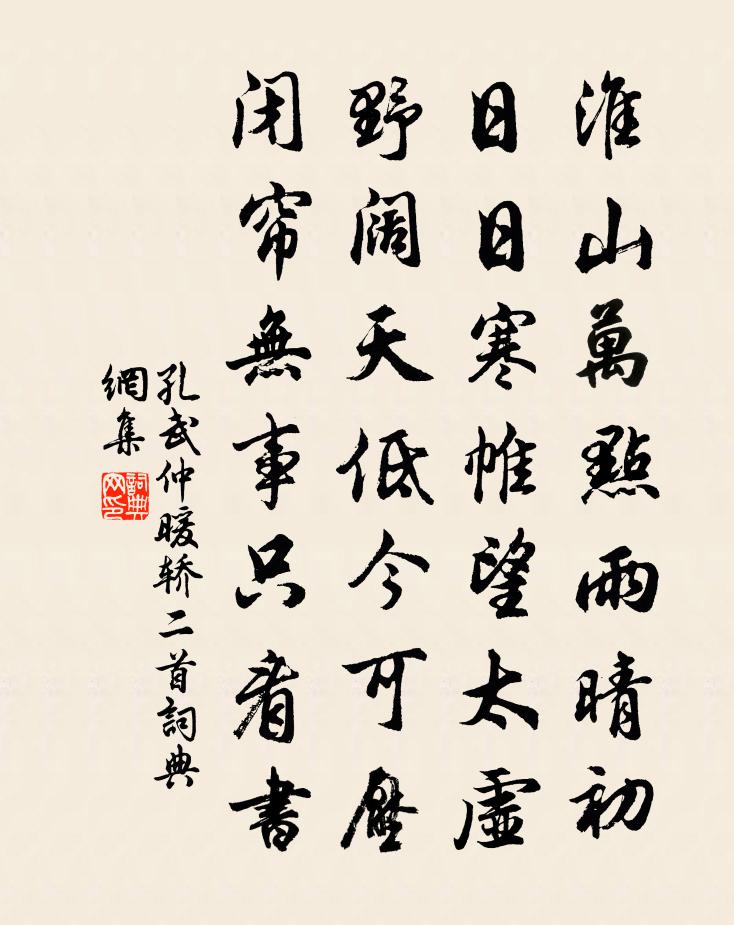 淮山萬點雨晴初
日日寒帷望太虛
野阔天低今可厭
闭帘無事只看書
孔武仲暖轿二首詞典
網集
詞典
网印